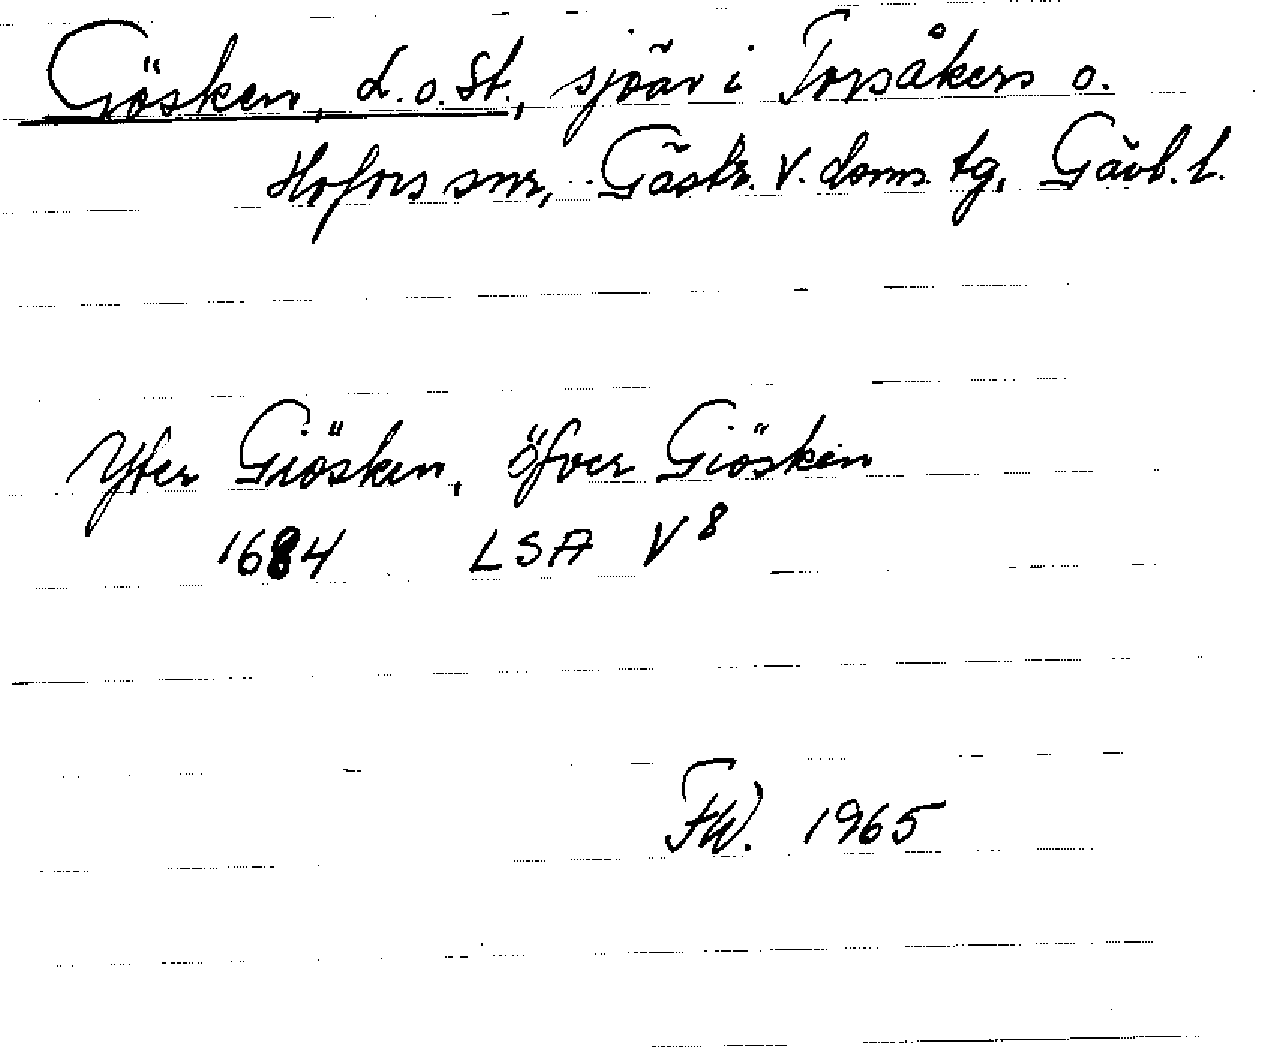 Gösken, L. o. St., sjöar i Torsåkers o.
Hofors snr, Gästr. V. doms. tg, Gävl. l.
Yter Giösken, öfver Giösken
1684 LSA V 8
FW. 1965